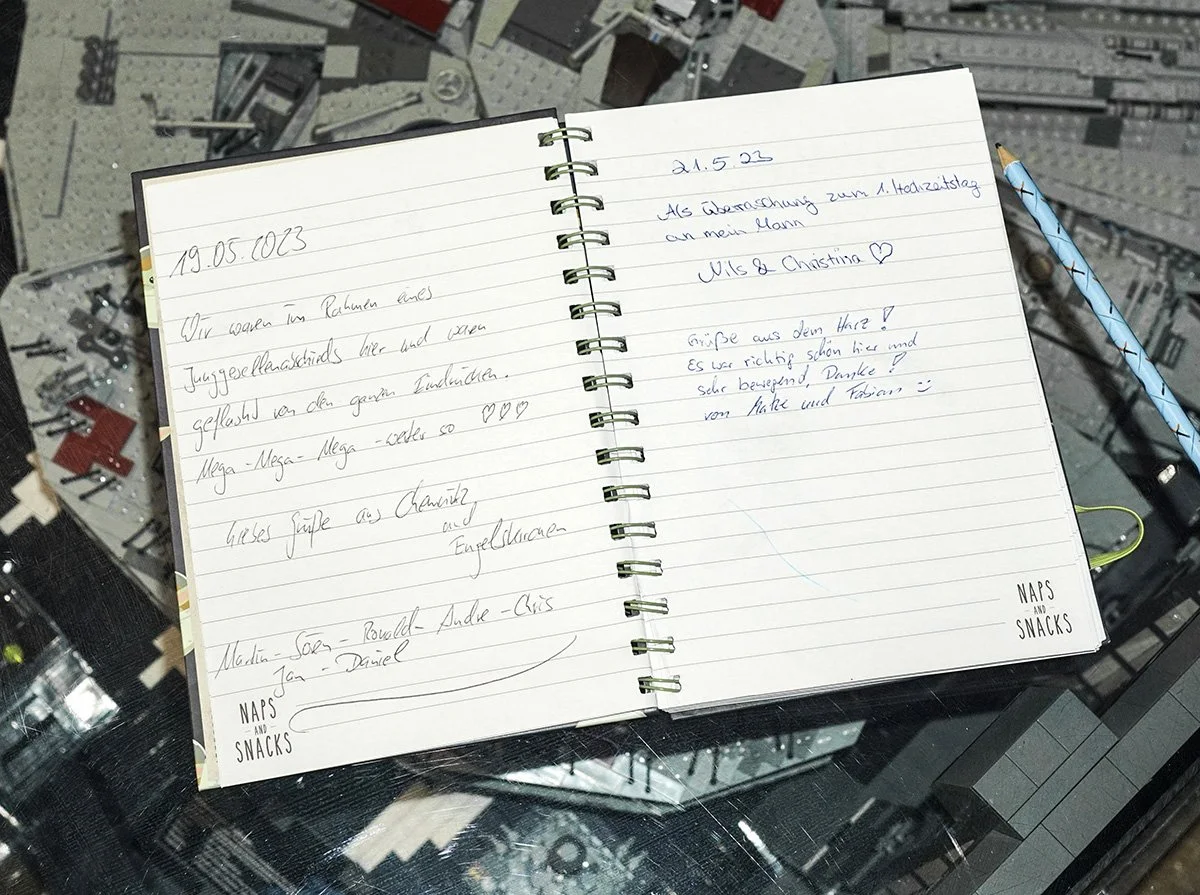 19.05.2023
Wir waren im Rahmen eines
Junggesellenabschieds hier und waren
geflasht von den ganzen Eindrücken.
Mega - Mega - Mega - weiter so ♡♡♡
liebes Grüße aus Chemnitz
und
Engelskirchen
Martin - Sören - Ronald - Andre - Chris
Jan - Daniel
NAPS
AND
SNACKS
21.5.23
Als Überraschung zum 1. Hochzeitstag
an mein Mann
Nils & Christina ♡
Grüße aus dem Harz!
Es war richtig schön hier und
sehr bewegend, Danke!
von und Fabian :)
NAPS
AND
SNACKS